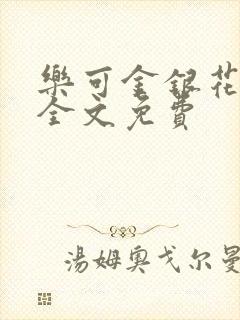 樂可金銀花
全文免費
湯姆奧戈尔曼